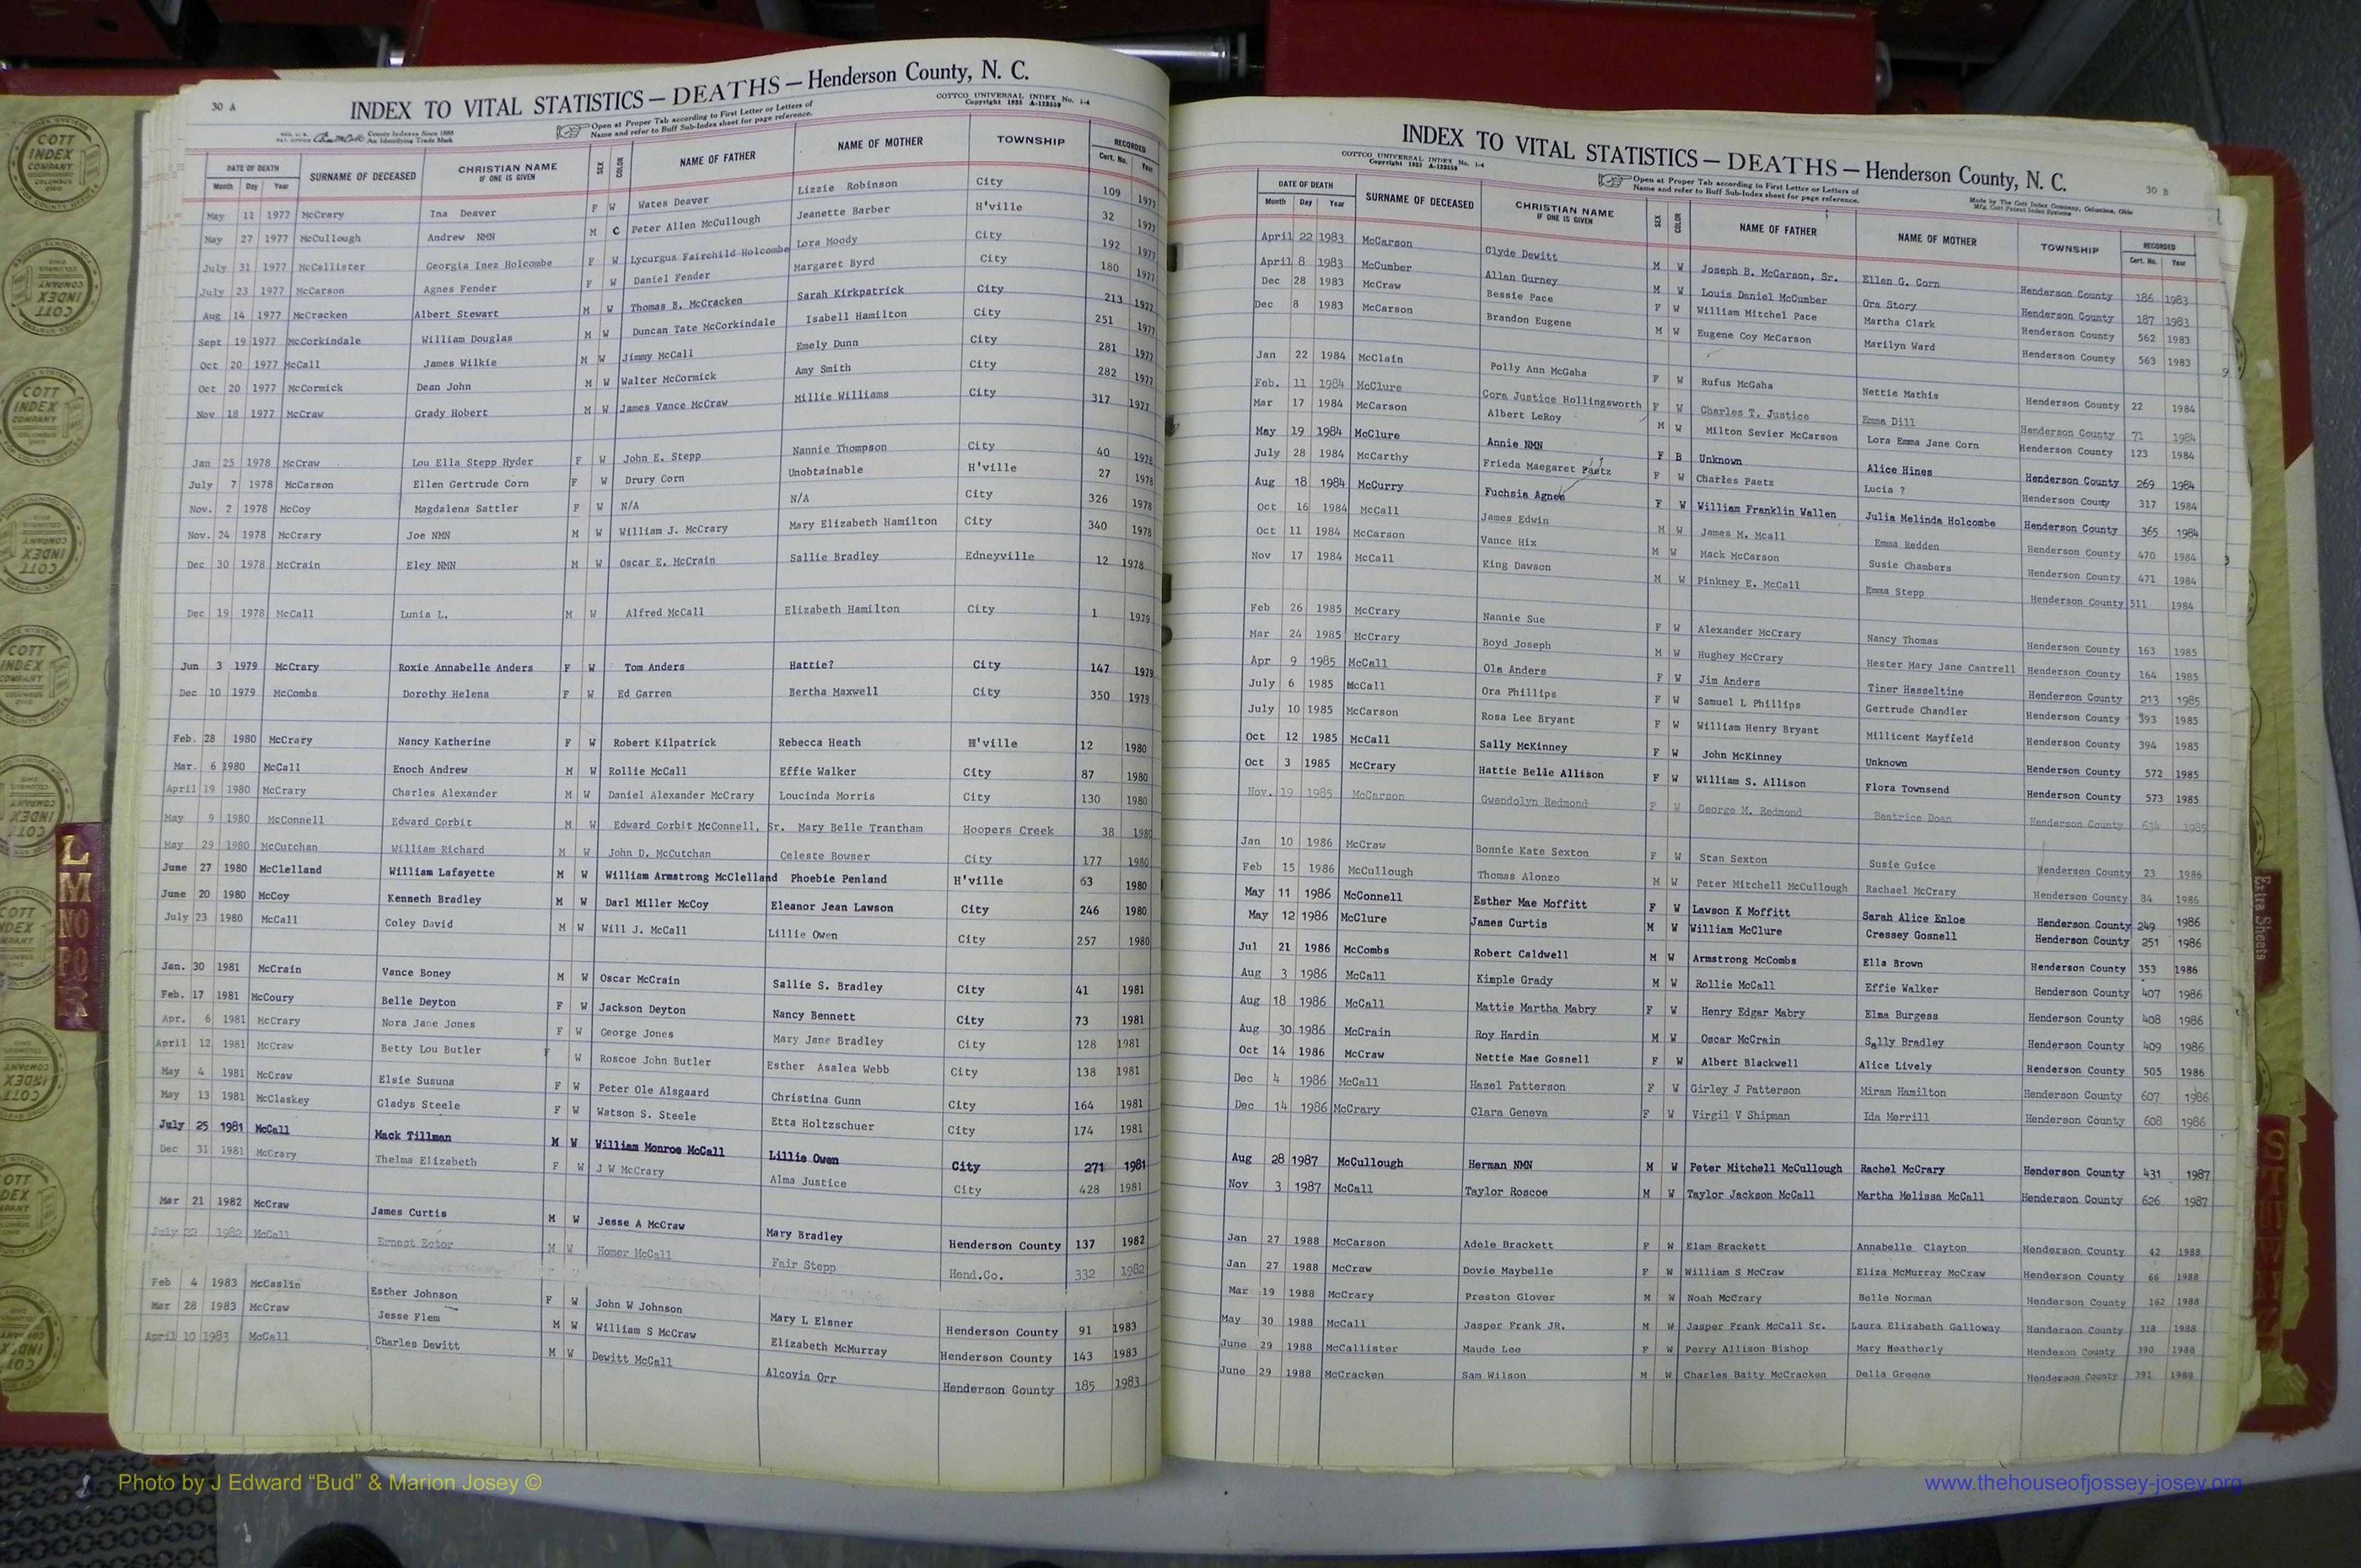 30 A
INDEX TO VITAL STATISTICS — DEATHS — Henderson County, N. C.
COTTCO UNIVERSAL INDEX No. 1-4
Copyright 1933 A-122559
County Indexes Since 1888
An Identifying Trade Mark
Open at Proper Tab according to First Letter or Letters of
Name and refer to Buff Sub-Index sheet for page reference.
DATE OF DEATH SURNAME OF DECEASED CHRISTIAN NAME IF ONE IS GIVEN SEX COLOR NAME OF FATHER NAME OF MOTHER TOWNSHIP RECORDED
Month Day Year Cert. No. Year
May 11 1977 McCrary Ina Deaver F W Wates Deaver Lizzie Robinson City 109 1977
May 27 1977 McCullough Andrew NMN M C Peter Allen McCullough Jeanette Barber H'ville 32 1977
July 31 1977 McCallister Georgia Inez Holcombe F W Lycurgus Fairchild Holcombe Lora Moody City 192 1977
July 23 1977 McCarson Agnes Fender F W Daniel Fender Margaret Byrd City 180 1977
Aug 14 1977 McCracken Albert Stewart M W Thomas B. McCracken Sarah Kirkpatrick City 213 1977
Sept 19 1977 McCorkindale William Douglas M W Duncan Tate McCorkindale Isabell Hamilton City 251 1977
Oct 20 1977 McCall James Wilkie M W Jimmy McCall Emely Dunn City 281 1977
Oct 20 1977 McCormick Dean John M W Walter McCormick Amy Smith City 282 1977
Nov 18 1977 McCraw Grady Hobert M W James Vance McCraw Millie Williams City 317 1977
Jan 25 1978 McCraw Lou Ella Stepp Hyder F W John E. Stepp Nannie Thompson City 40 1978
July 7 1978 McCarson Ellen Gertrude Corn F W Drury Corn Unobtainable H'ville 27 1978
Nov. 2 1978 McCoy Magdalena Sattler F W N/A N/A City 326 1978
Nov. 24 1978 McCrary Joe NMN M W William J. McCrary Mary Elizabeth Hamilton City 340 1978
Dec 30 1978 McCrain Eley NMN M W Oscar E. McCrain Sallie Bradley Edneyville 12 1978
Dec 19 1978 McCall Lunia L. M W Alfred McCall Elizabeth Hamilton City 1 1979
Jun 3 1979 McCrary Roxie Annabelle Anders F W Tom Anders Hattie? City 147 1979
Dec 10 1979 McCombs Dorothy Helena F W Ed Garren Bertha Maxwell City 350 1979
Feb. 28 1980 McCrary Nancy Katherine F W Robert Kilpatrick Rebecca Heath H'ville 12 1980
Mar. 6 1980 McCall Enoch Andrew M W Rollie McCall Effie Walker City 87 1980
April 19 1980 McCrary Charles Alexander M W Daniel Alexander McCrary Loucinda Morris City 130 1980
May 9 1980 McConnell Edward Corbit M W Edward Corbit McConnell, Sr. Mary Belle Trantham Hoopers Creek 38 1980
May 29 1980 McCutchan William Richard M W John D. McCutchan Celeste Bowser City 177 1980
June 27 1980 McClelland William Lafayette M W William Armstrong McClelland Phoebie Penland H'ville 63 1980
June 20 1980 McCoy Kenneth Bradley M W Darl Miller McCoy Eleanor Jean Lawson City 246 1980
July 23 1980 McCall Coley David M W Will J. McCall Lillie Owen City 257 1980
Jan. 30 1981 McCrain Vance Boney M W Oscar McCrain Sallie S. Bradley City 41 1981
Feb. 17 1981 McCoury Belle Deyton F W Jackson Deyton Nancy Bennett City 73 1981
Apr. 6 1981 McCrary Nora Jane Jones F W George Jones Mary Jane Bradley City 128 1981
April 12 1981 McCraw Betty Lou Butler F W Roscoe John Butler Esther Asalea Webb City 138 1981
May 4 1981 McCraw Elsie Susuna F W Peter Ole Alsgaard Christina Gunn City 164 1981
May 13 1981 McClaskey Gladys Steele F W Watson S. Steele Etta Holtzschuer City 174 1981
July 25 1981 McCall Mack Tillman M W William Monroe McCall Lillie Owen City 271 1981
Dec 31 1981 McCrary Thelma Elizabeth F W J W McCrary Alma Justice City 428 1981
Mar 21 1982 McCraw James Curtis M W Jesse A McCraw Mary Bradley Henderson County 137 1982
July 22 1982 McCall Ernest Ector M W Homer McCall Fair Stepp Hend.Co. 332 1982
Feb 4 1983 McCaslin Esther Johnson F W John W Johnson Mary L Elsner Henderson County 91 1983
Mar 28 1983 McCraw Jesse Flem M W William S McCraw Elizabeth McMurray Henderson County 143 1983
April 10 1983 McCall Charles Dewitt M W Dewitt McCall Alcovia Orr Henderson County 185 1983
INDEX TO VITAL STATISTICS — DEATHS — Henderson County, N. C.
30 B
COTTCO UNIVERSAL INDEX No. 1-4
Copyright 1933 A-122559
Open at Proper Tab according to First Letter or Letters of
Name and refer to Buff Sub-Index sheet for page reference.
Made by The Cott Index Company, Columbus, Ohio
Mfg. Cott Patent Index Systems
DATE OF DEATH SURNAME OF DECEASED CHRISTIAN NAME IF ONE IS GIVEN SEX COLOR NAME OF FATHER NAME OF MOTHER TOWNSHIP RECORDED
Month Day Year Cert. No. Year
April 22 1983 McCarson Clyde Dewitt M W Joseph B. McCarson, Sr. Ellen G. Corn Henderson County 186 1983
April 8 1983 McCumber Allan Gurney M W Louis Daniel McCumber Ora Story Henderson County 187 1983
Dec 28 1983 McCraw Bessie Pace F W William Mitchel Pace Martha Clark Henderson County 562 1983
Dec 8 1983 McCarson Brandon Eugene M W Eugene Coy McCarson Marilyn Ward Henderson County 563 1983
Jan 22 1984 McClain Polly Ann McGaha F W Rufus McGaha Nettie Mathis Henderson County 22 1984
Feb. 11 1984 McClure Cora Justice Hollingsworth F W Charles T. Justice Emma Dill Henderson County 71 1984
Mar 17 1984 McCarson Albert LeRoy M W Milton Sevier McCarson Lora Emma Jane Corn Henderson County 123 1984
May 19 1984 McClure Annie NMN F B Unknown Alice Hines Henderson County 269 1984
July 28 1984 McCarthy Frieda Maegaret Paetz F W Charles Paetz Lucia ? Henderson County 317 1984
Aug 18 1984 McCurry Fuchsia Agnes F W William Franklin Wallen Julia Melinda Holcombe Henderson County 365 1984
Oct 16 1984 McCall James Edwin M W James M. Mcall Emma Redden Henderson County 470 1984
Oct 11 1984 McCarson Vance Hix M W Mack McCarson Susie Chambers Henderson County 471 1984
Nov 17 1984 McCall King Dawson M W Pinkney E. McCall Emma Stepp Henderson County 511 1984
Feb 26 1985 McCrary Nannie Sue F W Alexander McCrary Nancy Thomas Henderson County 163 1985
Mar 24 1985 McCrary Boyd Joseph M W Hughey McCrary Hester Mary Jane Cantrell Henderson County 164 1985
Apr 9 1985 McCall Ola Anders F W Jim Anders Tiner Hasseltine Henderson County 213 1985
July 6 1985 McCall Ora Phillips F W Samuel L Phillips Gertrude Chandler Henderson County 393 1985
July 10 1985 McCarson Rosa Lee Bryant F W William Henry Bryant Millicent Mayfield Henderson County 394 1985
Oct 12 1985 McCall Sally McKinney F W John McKinney Unknown Henderson County 572 1985
Oct 3 1985 McCrary Hattie Belle Allison F W William S. Allison Flora Townsend Henderson County 573 1985
Nov. 19 1985 McCarson Gwendolyn Redmond F W George M. Redmond Beatrice Doan Henderson County 634 1985
Jan 10 1986 McCraw Bonnie Kate Sexton F W Stan Sexton Susie Guice Henderson County 23 1986
Feb 15 1986 McCullough Thomas Alonzo M W Peter Mitchell McCullough Rachael McCrary Henderson County 84 1986
May 11 1986 McConnell Esther Mae Moffitt F W Lawson K Moffitt Sarah Alice Enloe Henderson County 249 1986
May 12 1986 McClure James Curtis M W William McClure Cressey Gosnell Henderson County 251 1986
Jul 21 1986 McCombs Robert Caldwell M W Armstrong McCombs Ella Brown Henderson County 353 1986
Aug 3 1986 McCall Kimple Grady M W Rollie McCall Effie Walker Henderson County 407 1986
Aug 18 1986 McCall Mattie Martha Mabry F W Henry Edgar Mabry Elma Burgess Henderson County 408 1986
Aug 30 1986 McCrain Roy Hardin M W Oscar McCrain Sally Bradley Henderson County 409 1986
Oct 14 1986 McCraw Nettie Mae Gosnell F W Albert Blackwell Alice Lively Henderson County 505 1986
Dec 4 1986 McCall Hazel Patterson F W Girley J Patterson Miram Hamilton Henderson County 607 1986
Dec 14 1986 McCrary Clara Geneva F W Virgil V Shipman Ida Merrill Henderson County 608 1986
Aug 28 1987 McCullough Herman NMN M W Peter Mitchell McCullough Rachel McCrary Henderson County 431 1987
Nov 3 1987 McCall Taylor Roscoe M W Taylor Jackson McCall Martha Melissa McCall Henderson County 626 1987
Jan 27 1988 McCarson Adele Brackett F W Elam Brackett Annabelle Clayton Henderson County 42 1988
Jan 27 1988 McCraw Dovie Maybelle F W William S McCraw Eliza McMurray McCraw Henderson County 66 1988
Mar 19 1988 McCrary Preston Glover M W Noah McCrary Belle Norman Henderson County 162 1988
May 30 1988 McCall Jasper Frank JR. M W Jasper Frank McCall Sr. Laura Elizabeth Galloway Henderson County 318 1988
June 29 1988 McCallister Maude Lee F W Perry Allison Bishop Mary Heatherly Hendeson County 390 1988
June 29 1988 McCracken Sam Wilson M W Charles Baity McCracken Della Greene Henderson County 391 1988
COTT INDEX COMPANY
L
M
NO
PQ
R
Extra Sheets
Photo by J Edward “Bud” & Marion Josey ©
www.thehouseofjossey-josey.org